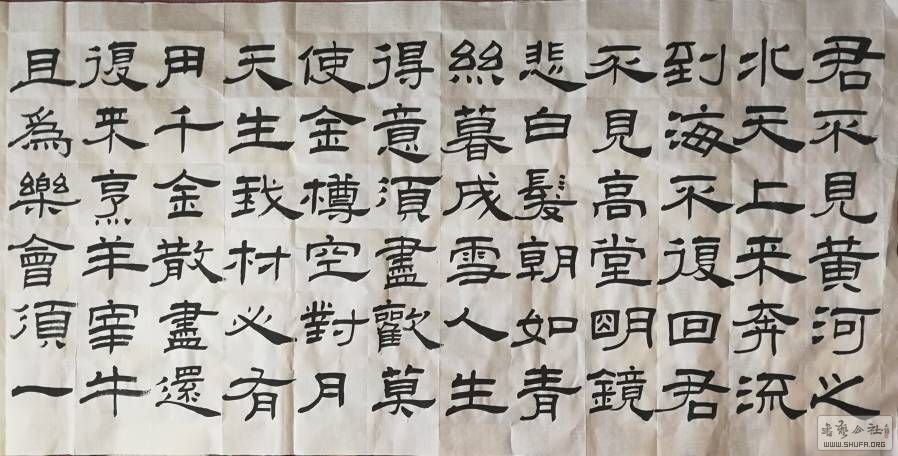 君不見黄河之
水天上来奔流
到海不復回君
不見高堂明鏡
悲白髮朝如青
絲暮成雪人生
得意須盡歡莫
使金樽空對月
天生我材必有
用千金散盡還
復来烹羊宰牛
且爲樂會須一
书艺公社
WWW.SHUFA.ORG